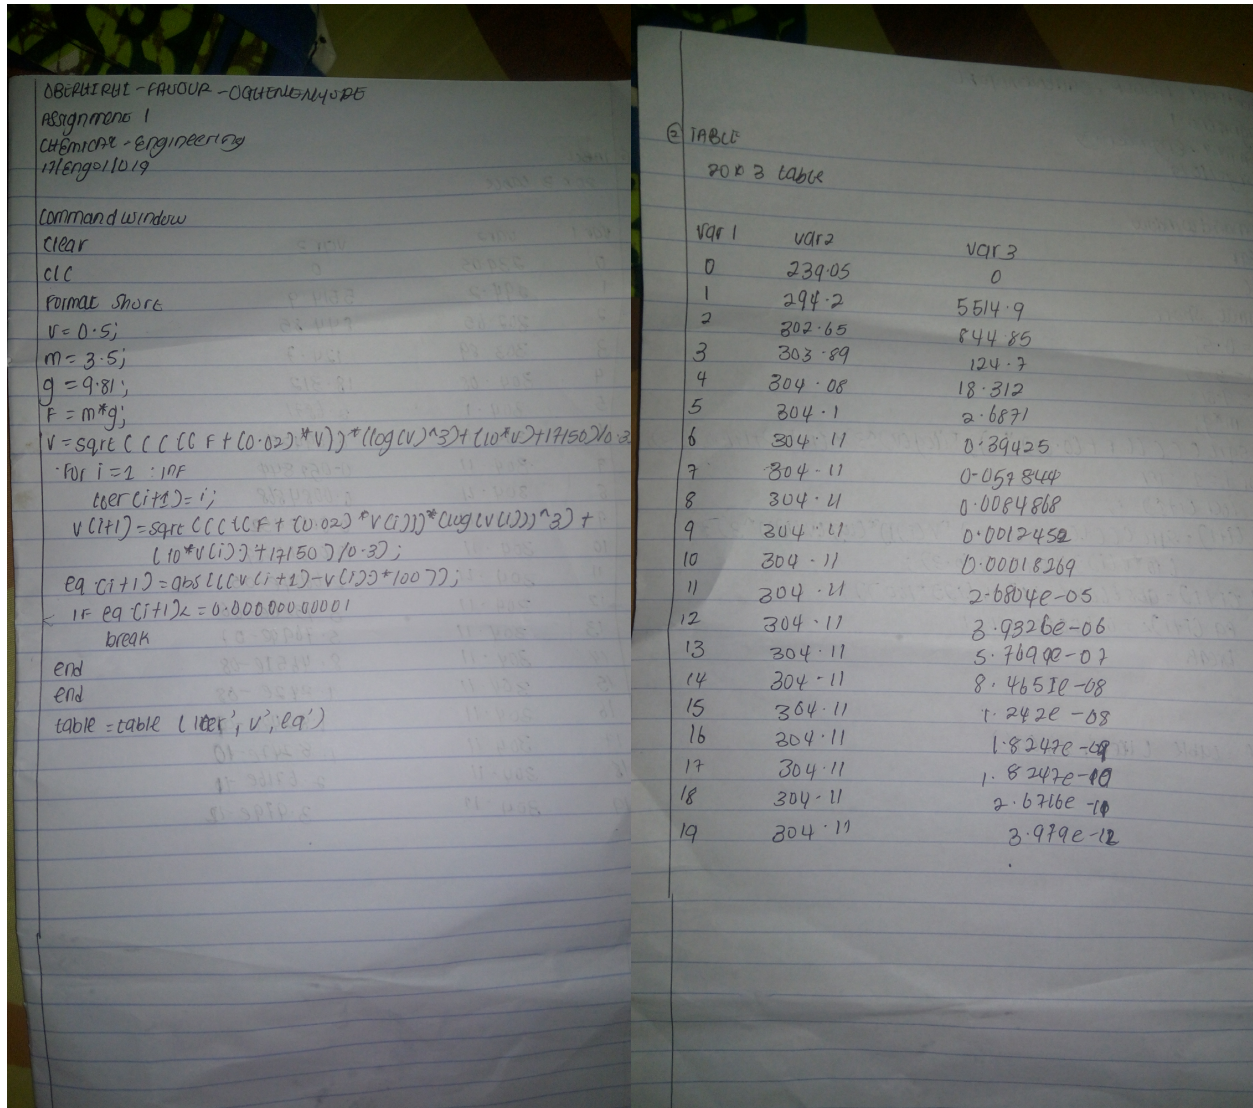 OBERHIRHI-FAVOUR-OGHENENYORE
Assignment 1
CHEMICAL-Engineering
17/Eng01/019
Command window
Clear
Clc
Format short
V=0.5;
m=3.5;
g=9.81;
F=m*g;
V=sqrt(((((F+(0.02)*V))*(log(v)^3)+(10*v)+17150)/0.3
For i=1:inf
iter(i+1)=i;
V(i+1)=sqrt((((F+(0.02)*V(i)))*(log(v(i)))^3)+
(10*v(i))+17150)/0.3);
ea(i+1)=abs(((v(i+1)-v(i))*100));
IF ea(i+1)<=0.00000000001
break
end
end
table=table(iter',v',ea')
② TABLE
20x3 table
Var 1 var2 var 3
0 239.05 0
1 294.2 5514.9
2 302.65 844.85
3 303.89 124.7
4 304.08 18.312
5 304.1 2.6871
6 304.11 0.39425
7 304.11 0.057844
8 304.11 0.0084868
9 304.11 0.0012452
10 304.11 0.00018269
11 304.11 2.6804e-05
12 304.11 3.9326e-06
13 304.11 5.7699e-07
14 304.11 8.4651e-08
15 304.11 1.242e-08
16 304.11 1.8247e-09
17 304.11 1.8247e-10
18 304.11 2.6716e-11
19 304.11 3.979e-12